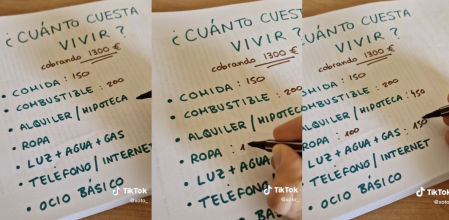 ¿CUÁNTO CUESTA
VIVIR?
cobrando 1300 €
• COMIDA : 150
• COMBUSTIBLE : 200
• ALQUILER / HIPOTECA
• ROPA
• LUZ + AGUA + GAS
• TELEFONO / INTERNET
• OCIO BÁSICO
TikTok
@xoto_
¿CUÁNTO CUESTA
VIVIR?
cobrando 1300 €
• COMIDA : 150
• COMBUSTIBLE : 200
• ALQUILER / HIPOTECA
• ROPA : 1
• LUZ + AGUA
• TELEFONO
BÁ
TikTok
@xoto_
¿CUÁNTO CUESTA
VIVIR?
cobrando 1300 €
COMIDA : 150
COMBUSTIBLE : 200
ALQUILER / HIPOTECA : 450
ROPA : 100
LUZ + AGUA + GAS : 150
TELEFONO / INTERNET
OCIO BÁSICO
TikTok
@xoto_